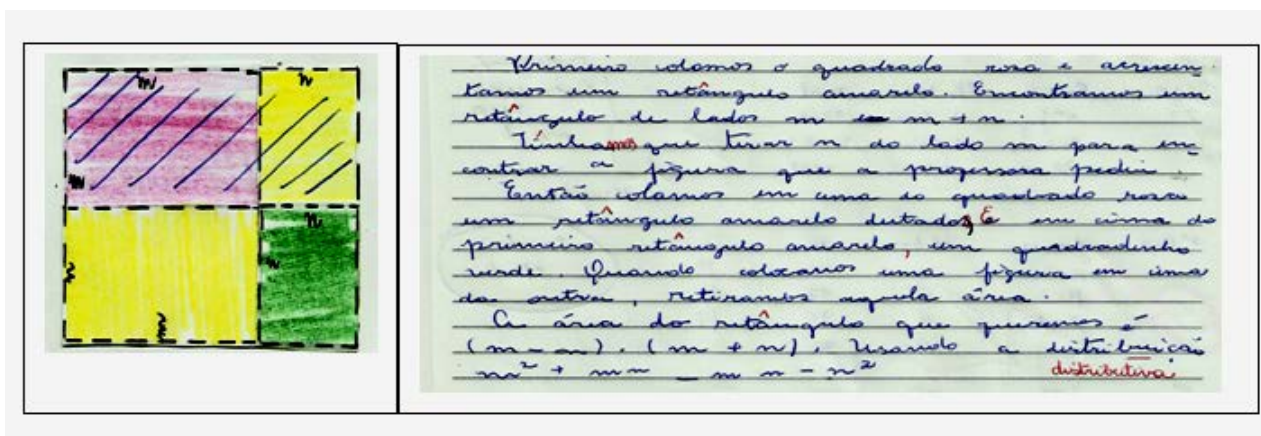 m n
m
n
n
n
m
Primeiro colamos o quadrado rosa e acrescen
tamos um retângulo amarelo. Encontramos um
retângulo de lados m e m + n.
Tínhamos que tirar n do lado m para en
contrar a figura que a professora pediu.
Então colamos em cima do quadrado rosa
um retângulo amarelo deitado, E em cima do
primeiro retângulo amarelo, um quadradinho
verde. Quando colocamos uma figura em cima
da outra, retiramos aquela área.
A área do retângulo que queremos é
(m - n) . (m + n). Usando a distribuição
m² + mn - m n - n² distributiva